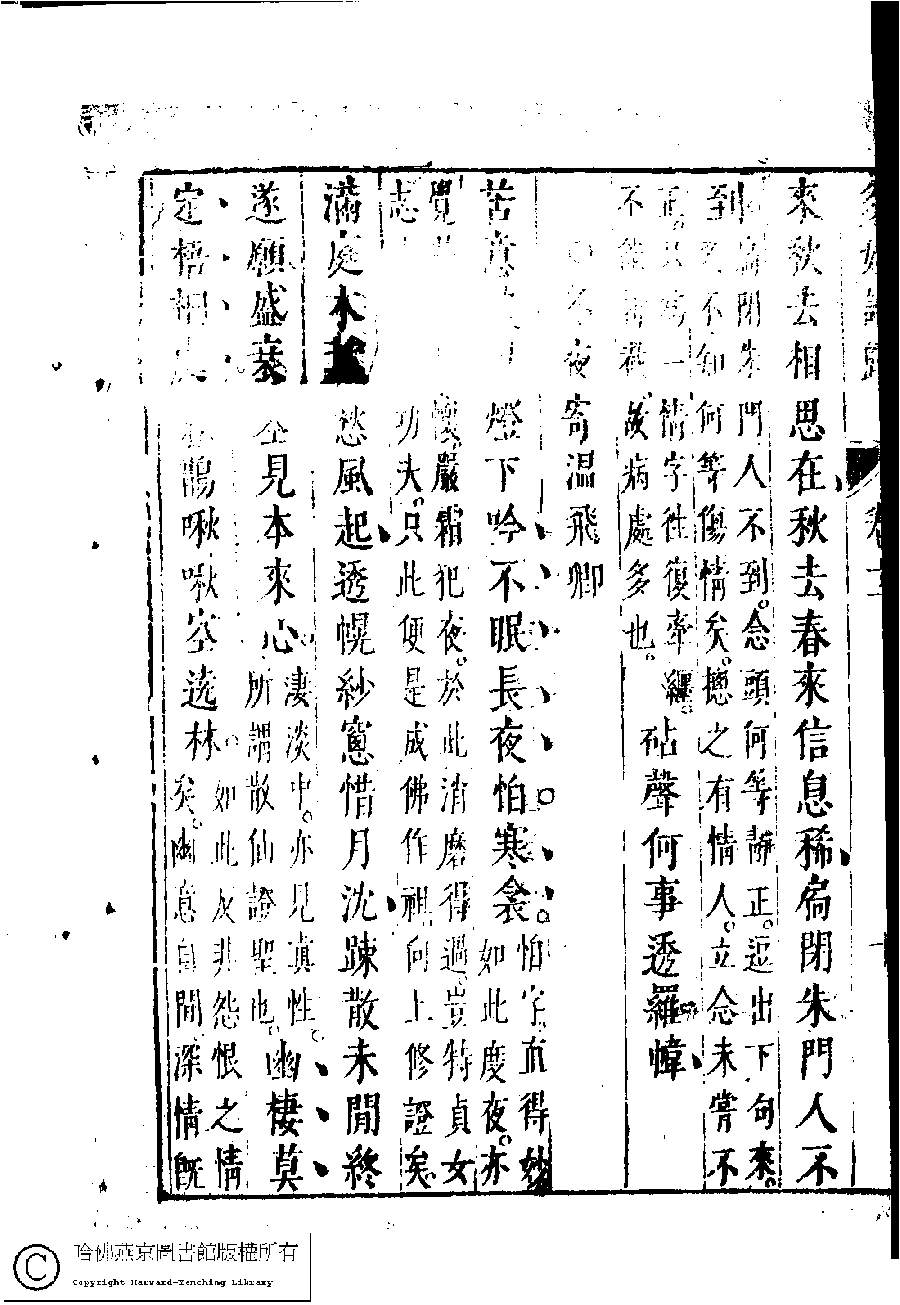 來秋去相思在秋去春來信息稀扃閉朱門人不
扃閉朱門人不到。念頭何等靜正。逗出下句來。
到 不知何等傷情矣。 之有情人。立念未嘗不
正。只爲一情字往復牽纏。
不能 故病處多也。
砧聲何事透羅幃
○冬夜寄溫飛卿
苦意 燈下吟不眠長夜怕寒衾
怕字。亦得妙
如此度夜。亦
覺 懷。嚴霜犯夜。於此消磨得過。豈特貞女
志 功夫。只此便是成佛作祖。向上修證矣。
滿庭木葉愁風起透幌紗窻惜月沈疎散未閒終
遂願盛衰空見本來心
淒淡中。亦見眞性。
所謂散仙證聖也。
幽棲莫
定梧桐 鵲啾啾空遶林
如此反非怨恨之情
矣。幽意自閒深情旣
哈佛燕京圖書館版權所有
Copyright Harvard-Yenching Library